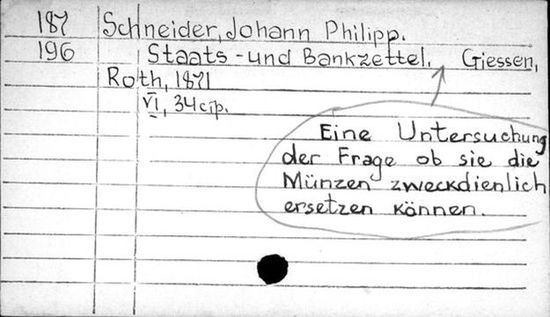 187 Schneider, Johann Philipp.
196 Staats-und Bankzettel. Giessen,
Roth, 1871
VI, 34 c/p.
Eine Untersuchung
der Frage ob sie die
Münzen zweckdienlich
ersetzen können.